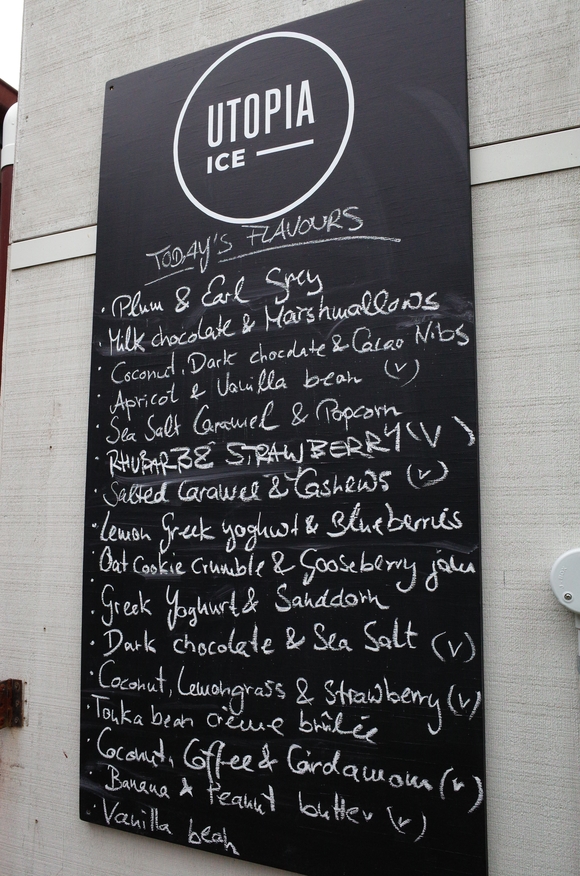 UTOPIA
ICE
TODAY'S FLAVOURS
· Plum & Earl Grey
· Milk chocolate & Marshmallows
· Coconut, Dark chocolate & Cacao Nibs
· Apricot & Vanilla bean (v)
· Sea Salt Caramel & Popcorn
· RHUBARB & STRAWBERRY (V)
· Salted Caramel & Cashews (v)
· Lemon Greek yoghurt & Blueberries
· Oat Cookie crumble & Gooseberry jam
· Greek Yoghurt & Sanddorn
· Dark chocolate & Sea Salt (v)
· Coconut, Lemongrass & Strawberry (v)
· Tonka bean crème brûlée
· Coconut, Coffee & Cardamom (v)
· Banana & Peanut butter (v)
· Vanilla bean